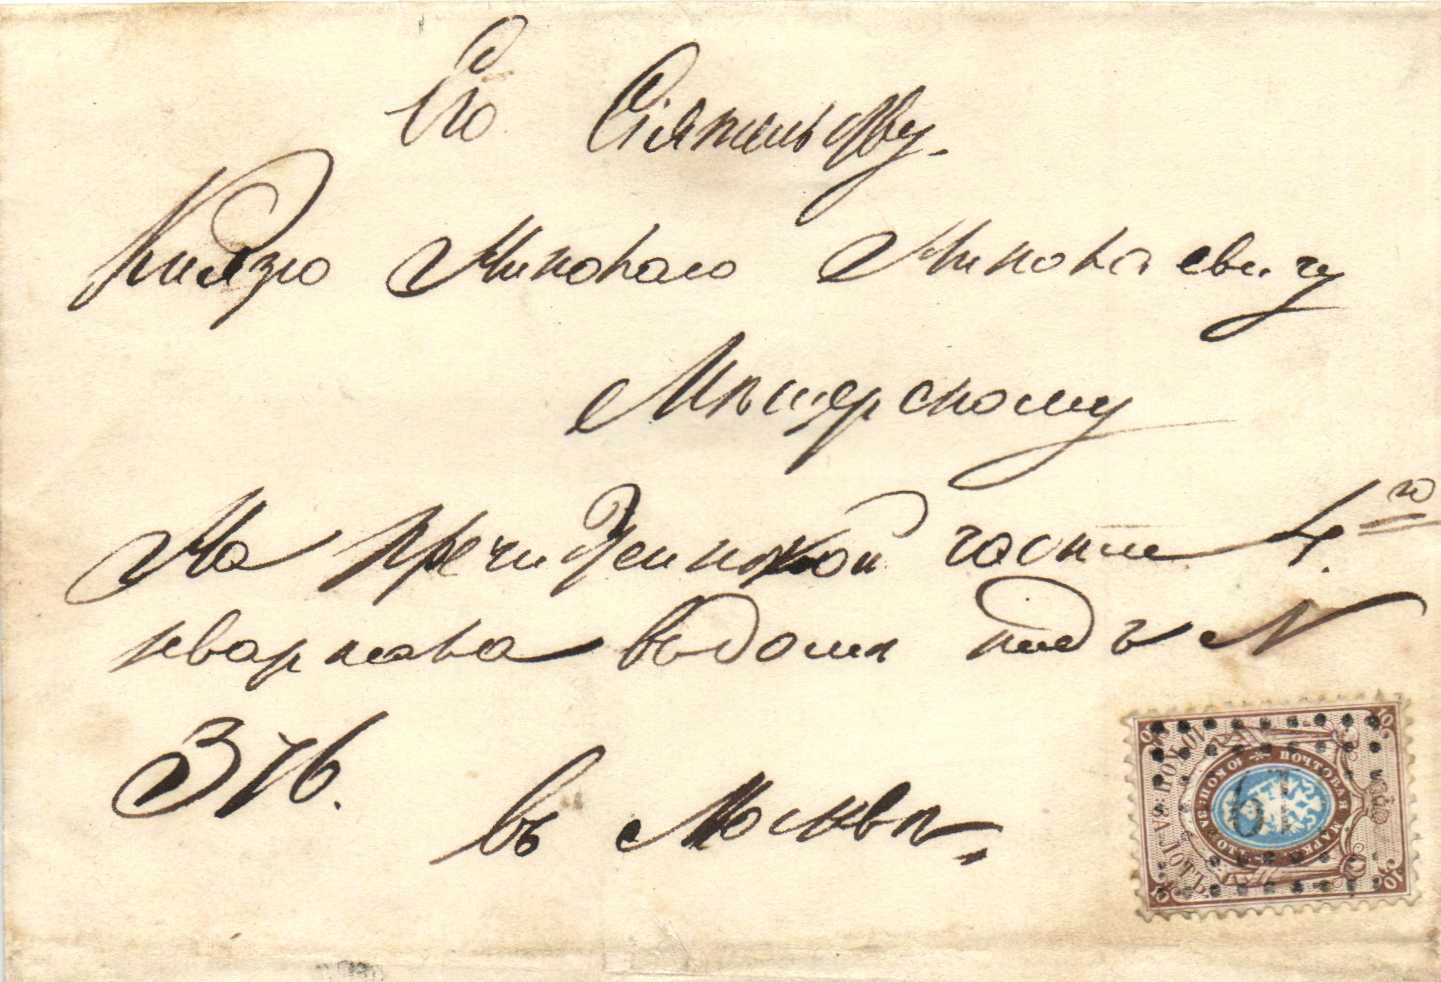 Его Сіятельству.
Князю Николаю Николаевичу
Мещерскому
На пречиZенской части 4.го
квартала въ доми подъ N
376.
въ Москвѣ.
10 10 10 10
61